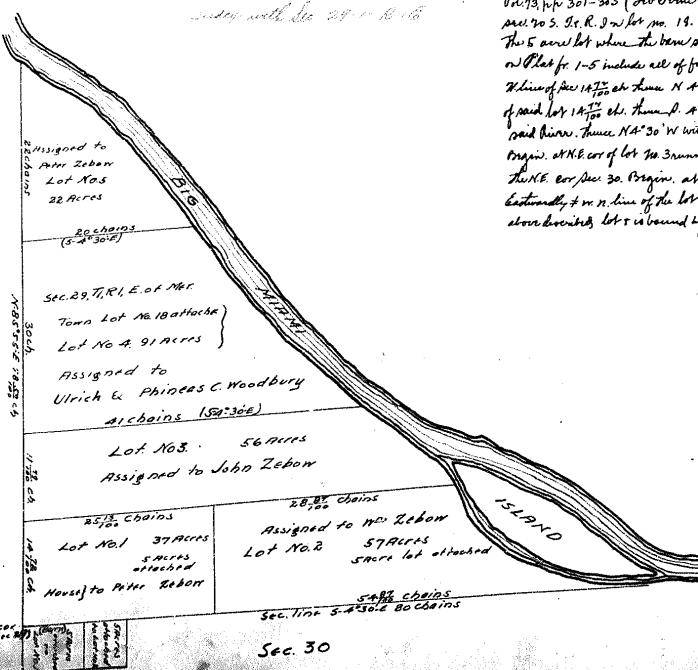 Survey with Sec 29
Vol. 73, pp 301-303
sec. 30 S. T. R. I in lot no. 19.
The 5 acre lot where the barn
on Plat fr. 1-5 include all of
W line of Sec 14 74/100 ch thence N
of said lot 14 74/100 ch. thence S.
said River. thence N4°30'W
Begin. at N.E. cor of lot no. 3
the N.E. cor Sec 30. Begin. at
Eastwardly & w. n. line of the lot
above described lot & is bound
22 chains
Assigned to
Peter Zebow
Lot No 5
22 Acres
20 chains
(S-4°30'E)
BIG
MIAMI
Sec. 29, T1, R1, E. of Mer.
Town Lot No. 18 attache
Lot No 4. 91 Acres
Assigned to
Ulrich & Phineas C. Woodbury
41 chains (S4°30'E)
30 ch
Lot No 3. 56 Acres
Assigned to John Zebow
25 13/100 chains
Lot No. 1 37 Acres
5 Acres
attached
House} to Peter Zebow
28 87/100 chains
Assigned to Wm Zebow
Lot No. 2 57 Acres
5 Acre lot attached
ISLAND
54 87/100 chains
Sec. line S-4°30'E 80 chains
Sec. 30